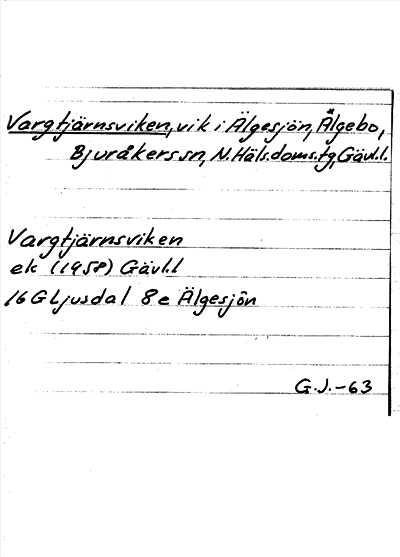 Vargtjärnsviken, vik i Älgesjön, Älgebo,
Bjuråkers sn, N. Häls. doms. tg, Gävl.l.
Vargtjärnsviken
ek (1958) Gävl.l
16G Ljusdal 8e Älgesjön
G.J.-63